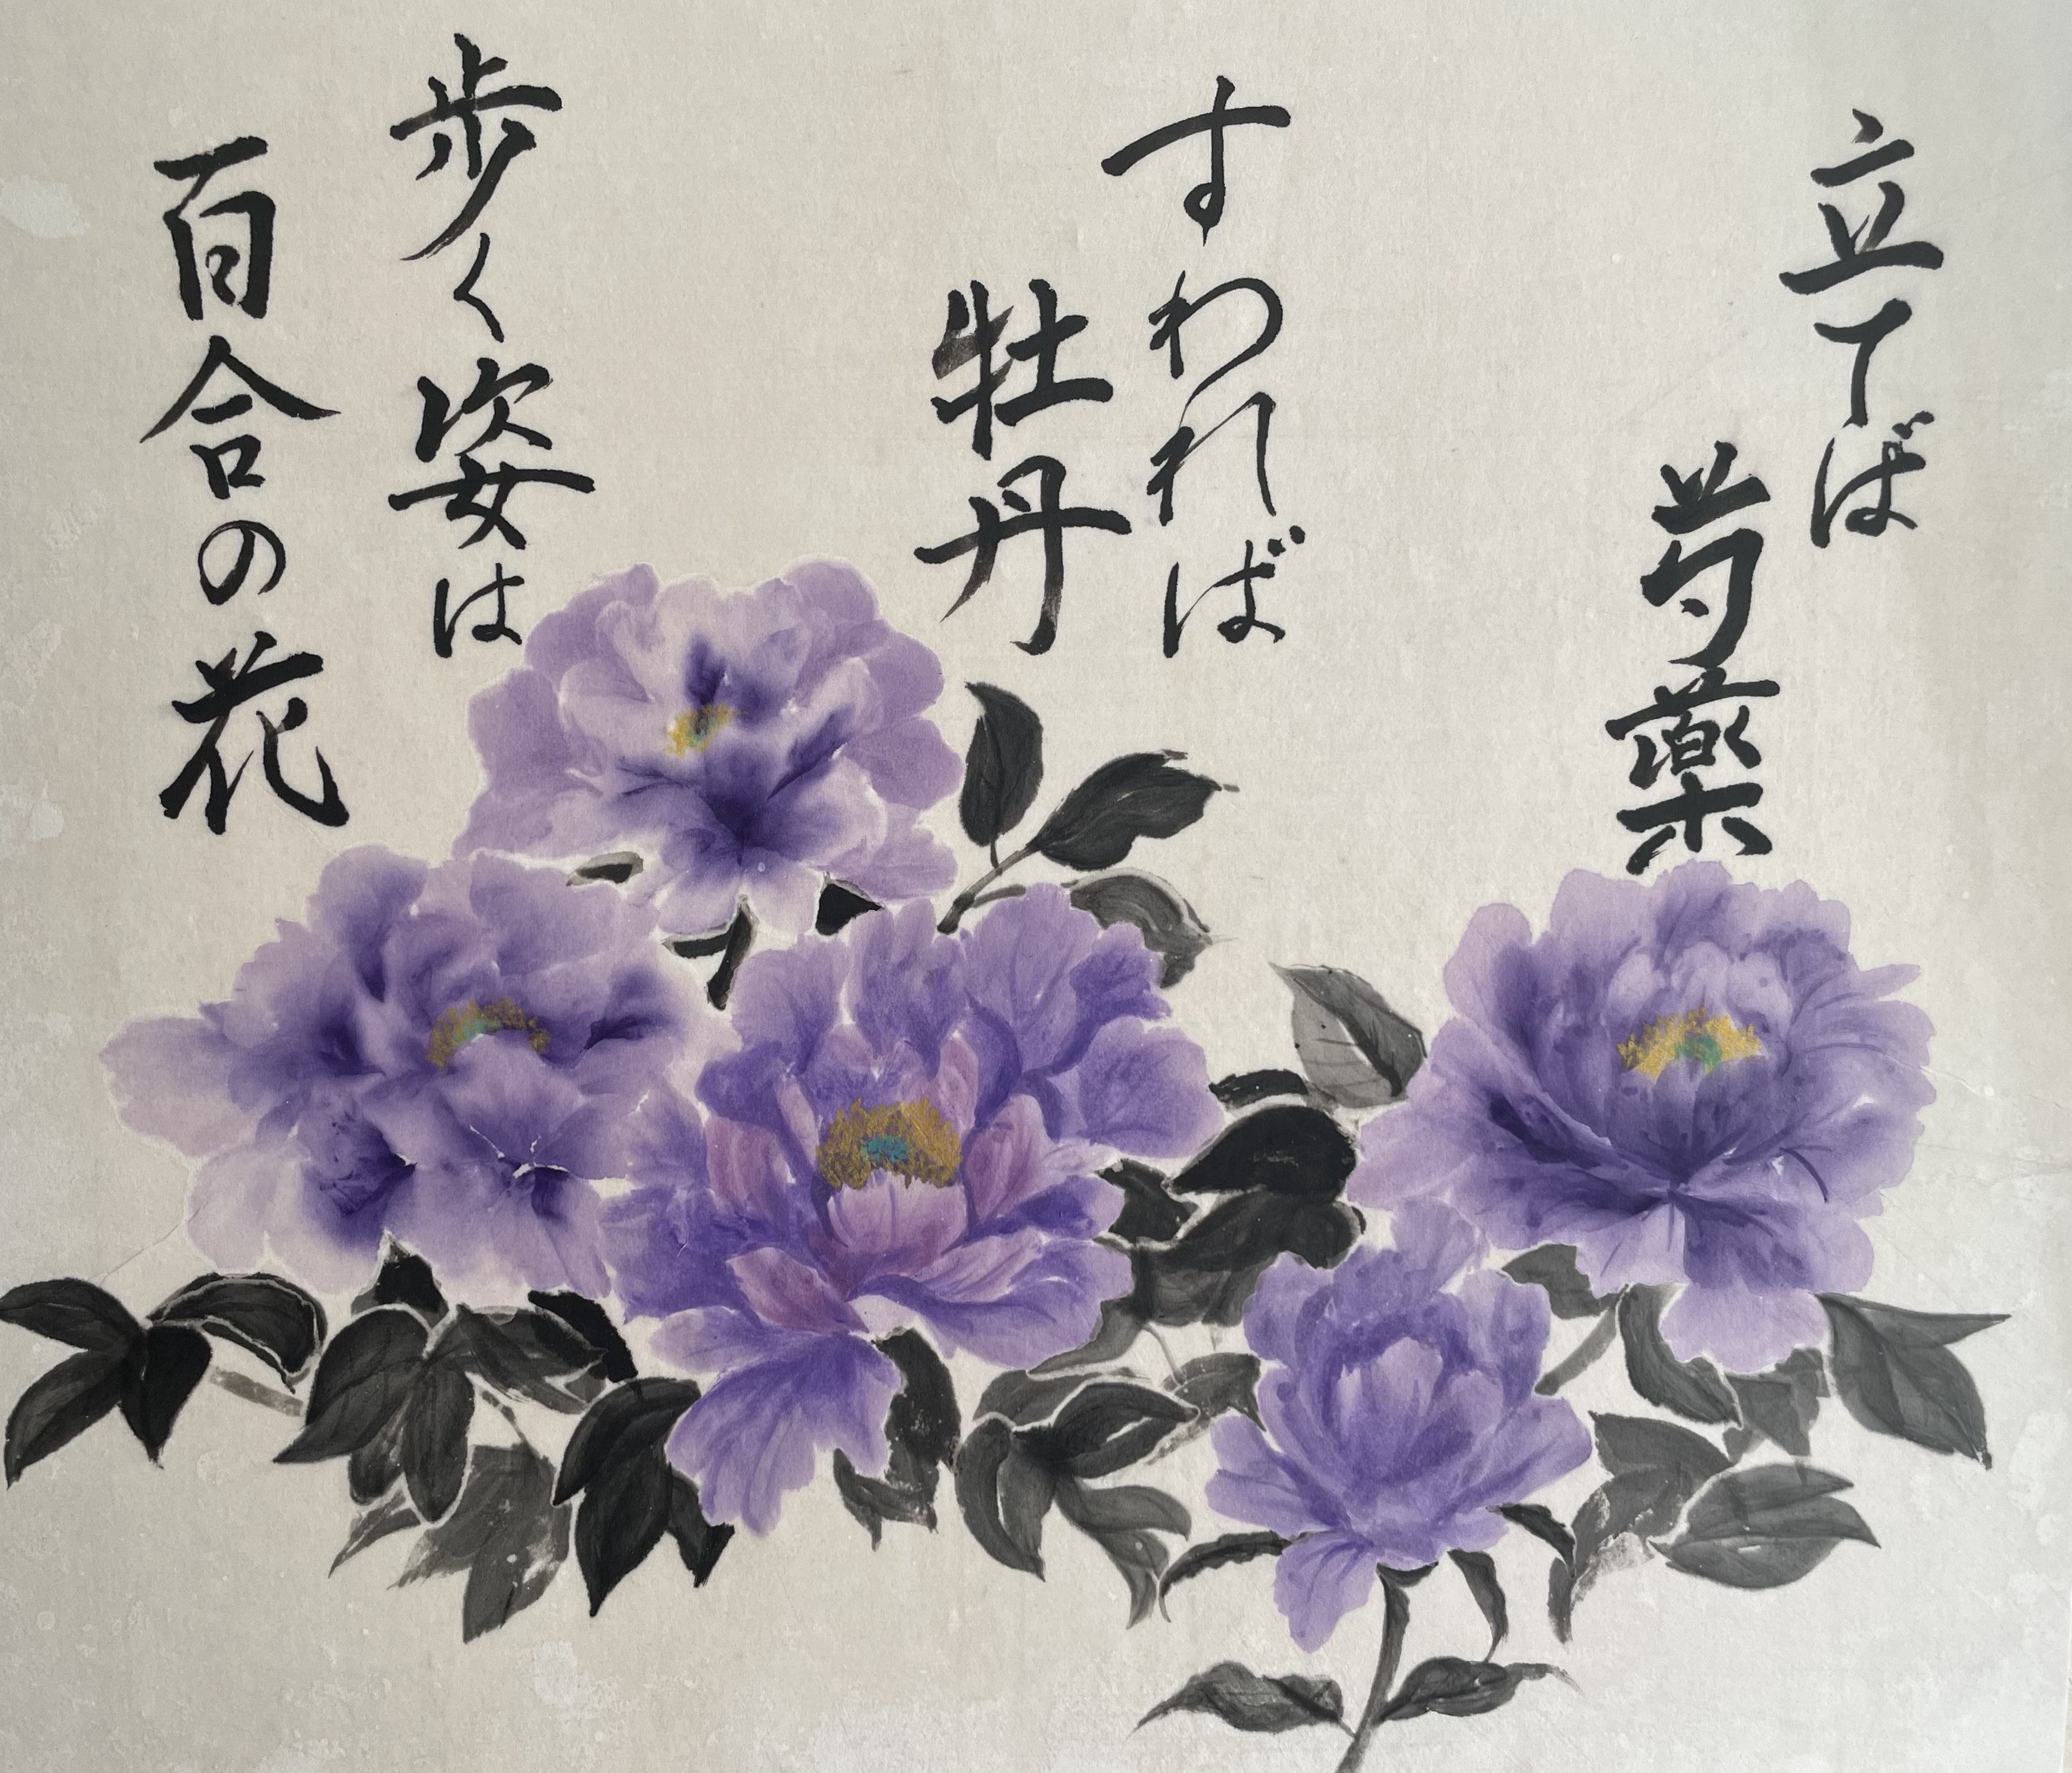 立てば
芍薬
すわれば
牡丹
歩く姿は
百合の花